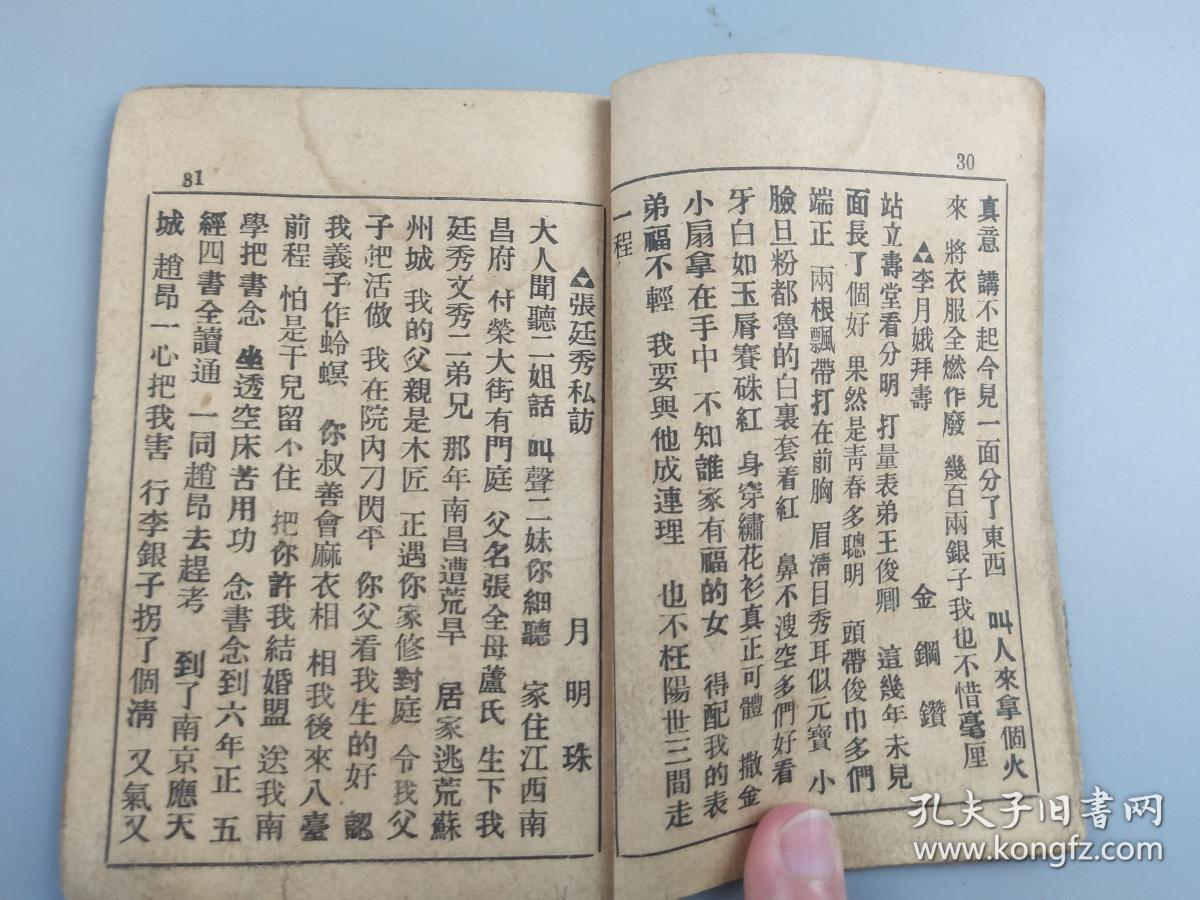 30
真意 講不起今見一面分了東西 叫人來拿個火
來 將衣服全燃作廢 幾百兩銀子我也不惜毫厘
▲李月娥拜壽 金鋼鑽
站立壽堂看分明 打量表弟王俊卿 這幾年未見
面長了個好 果然是靑春多聰明 頭帶俊巾多們
端正 兩根飄帶打在前胸 眉淸目秀耳似元寶 小
臉旦粉都魯的白裏套着紅 鼻不溲空多們好看
牙白如玉唇賽硃紅 身穿繡花衫真正可體 撒金
小扇拿在手中 不知誰家有福的女 得配我的表
弟福不輕 我要與他成連理 也不枉陽世三間走
一程
31
▲張廷秀私訪 月明珠
大人聞聽二姐話 叫聲二妹你細聽 家住江西南
昌府 付榮大街有門庭 父名張全母蘆氏 生下我
廷秀文秀二弟兄 那年南昌遭荒旱 居家逃荒蘇
州城 我的父親是木匠 正遇你家修對庭 令我父
子把活做 我在院內刁閃平 你父看我生的好 認
我義子作蛉螟 你叔善會麻衣相 相我後來八臺
前程 怕是干兒留不住 把你許我結婚盟 送我南
學把書念 坐透空床苦用功 念書念到六年正 五
經四書全讀通 一同趙昂去趕考 到了南京應天
城 趙昂一心把我害 行李銀子拐了個淸 又氣又
孔夫子旧书网
www.kongfz.com